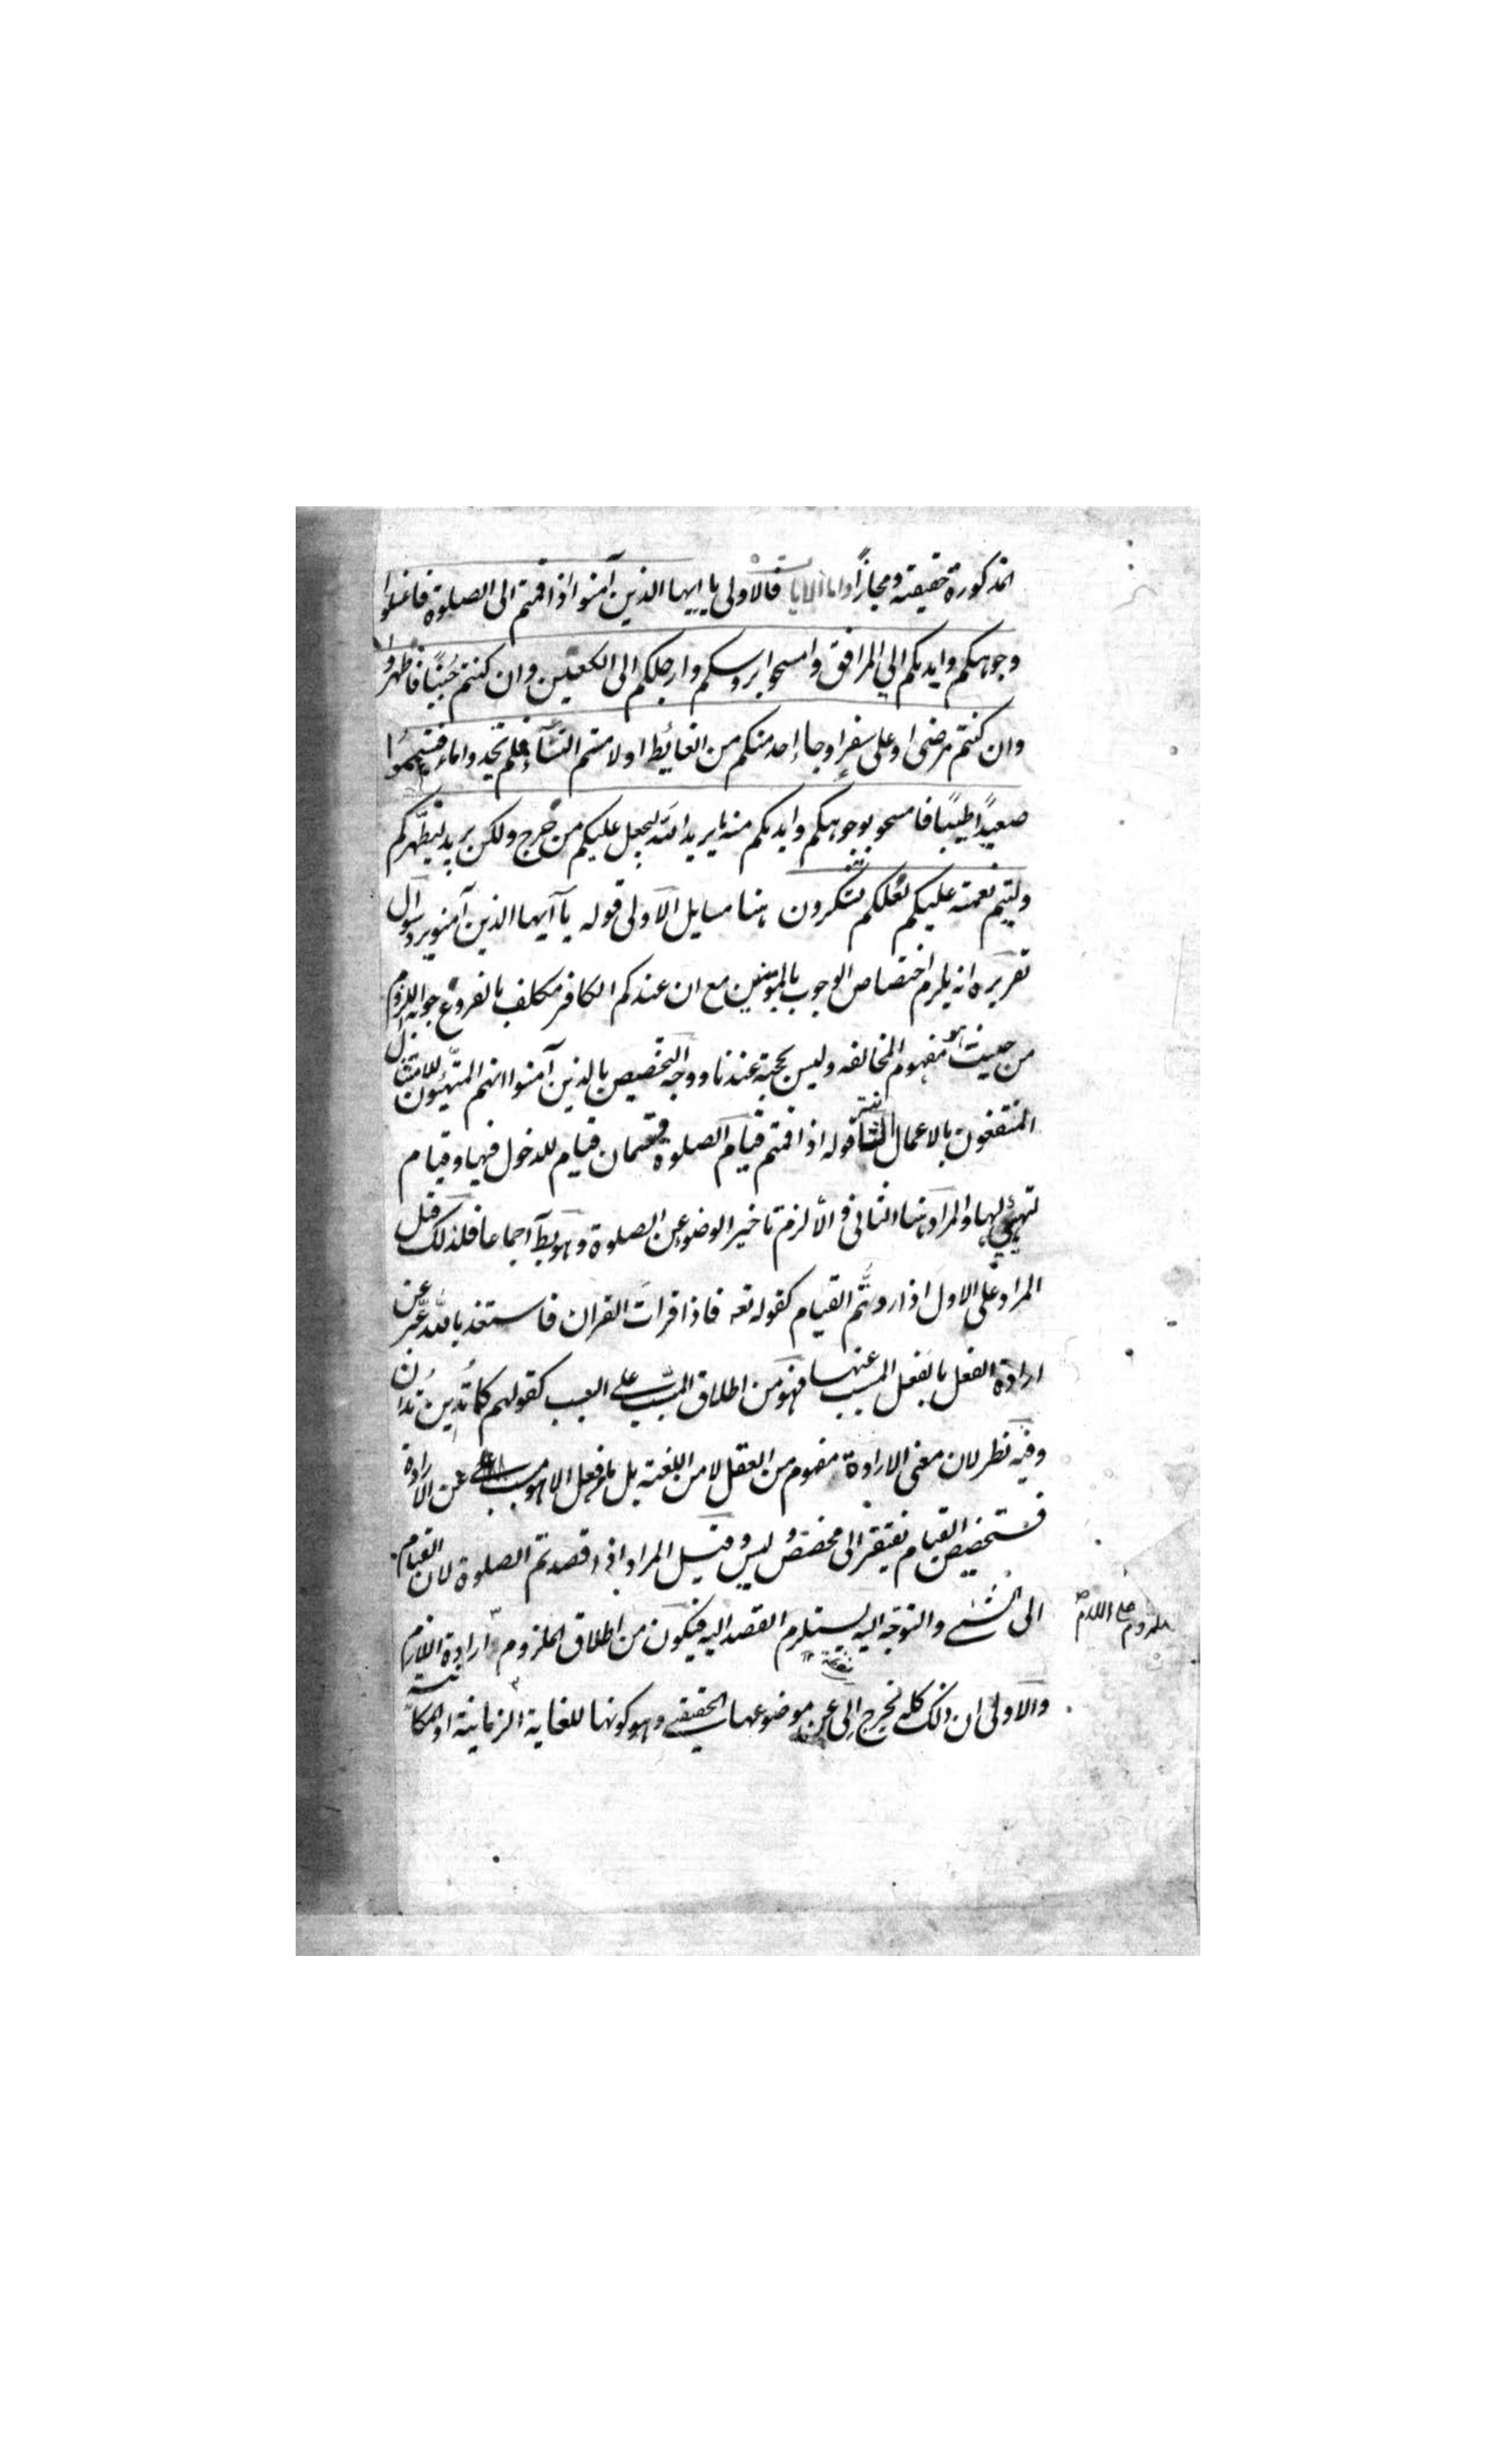 المذكورة حقيقته ومجازاً واما الآيات فالاولى يا ايها الذين آمنوا اذا قمتم الى الصلوة فاغسلوا
وجوهكم وايديكم الى المرافق وامسحوا برؤسكم وارجلكم الى الكعبين وان كنتم جنباً فاطهروا
وان كنتم مرضى او على سفر او جاء احد منكم من الغائط او لامستم النسآء فلم تجدوا ماء فتيمموا
صعيداً طيباً فامسحو بوجوهكم وايديكم منه ما يريد الله ليجعل عليكم من حرج ولكن يريد ليطهركم
وليتم نعمته عليكم لعلكم تشكرون هنا مسايل الآولى قوله يا آيها الذين آمنو يرد سوال
تقريره انه يلزم اختصاص الوجوب بالمؤمنين مع ان عندكم الكافر مكلف بالفروع جوابه اللزوم
من حيث هو مفهوم المخالفه وليس بحجة عندنا ووجه التخصيص بالذين آمنوا انهم المتهيئون للامتثال
المنتفعون بالاعمال الثانية قوله اذا قمتم قيام الصلوة قسمان قيام للدخول فيها وقيام
لتهيئ لها والمراد هنا الثانى والّا لزم تاخير الوضوء عن الصلوة وهو بط اجماعا فلذلك قيل
المراد على الاول اذا اردتّم القيام كقوله تعه فاذا قرات القران فاستعذ بالله عبّر عن
ارادة الفعل بالفعل المسبب عنها فهو من اطلاق المسبب على السبب كقولهم كما تُدين تُدان
وفيه نظر لان معنى الارادة مفهوم من العقل لا من اللغة بل ما من فعل الا وهو مسبب عن الارادة
فتخصيص القيام يفتقر الى مخصص وليس وقيل المراد اذا قصدتم الصلوة لان القيام
الى الشئ والتوجه اليه يستلزم القصد اليه فيكون من اطلاق الملزوم وارادة اللازم
والاولى ان ذلك كله يخرج الى عن موضوعها الحقيقى وهو كونها للغاية الزمانية او المكانية